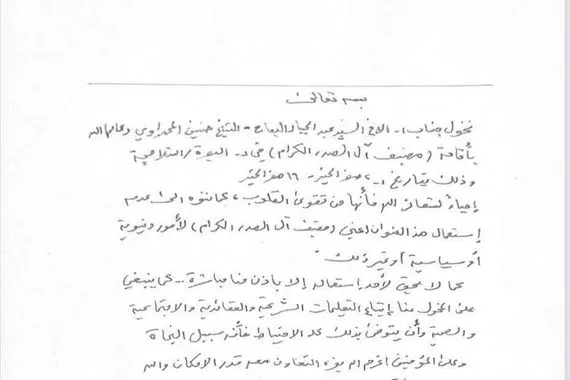 بسمه تعالى
نخول جناب ١- الاخ السيد عبد الجبار ٢- الشيخ حسنين المحمداوي
بأقامة (مضيف آل الصدر الكرام) في
وذلك بتاريخ ١- صفر الخير - ١٦ صفر الخير
إحياءً لشعائر الله فأنها من تقوى القلوب، كما ننوه الى عدم
إستعمال هذا العنوان اعني (مضيف آل الصدر الكرام) لأمور دنيوية
أو سياسية أو غير ذلك
كما لا يحق لأحد إستعماله إلا بإذن منا مباشرة... كما ينبغي
على المخول منا إتباع التعليمات الشرعية والعقائدية والاجتماعية
والصحية وأن يتوخى بذلك الاحتياط فأنه سبيل النجاة
وعلى المؤمنين اعزهم الله التعاون معه قدر الامكان والله